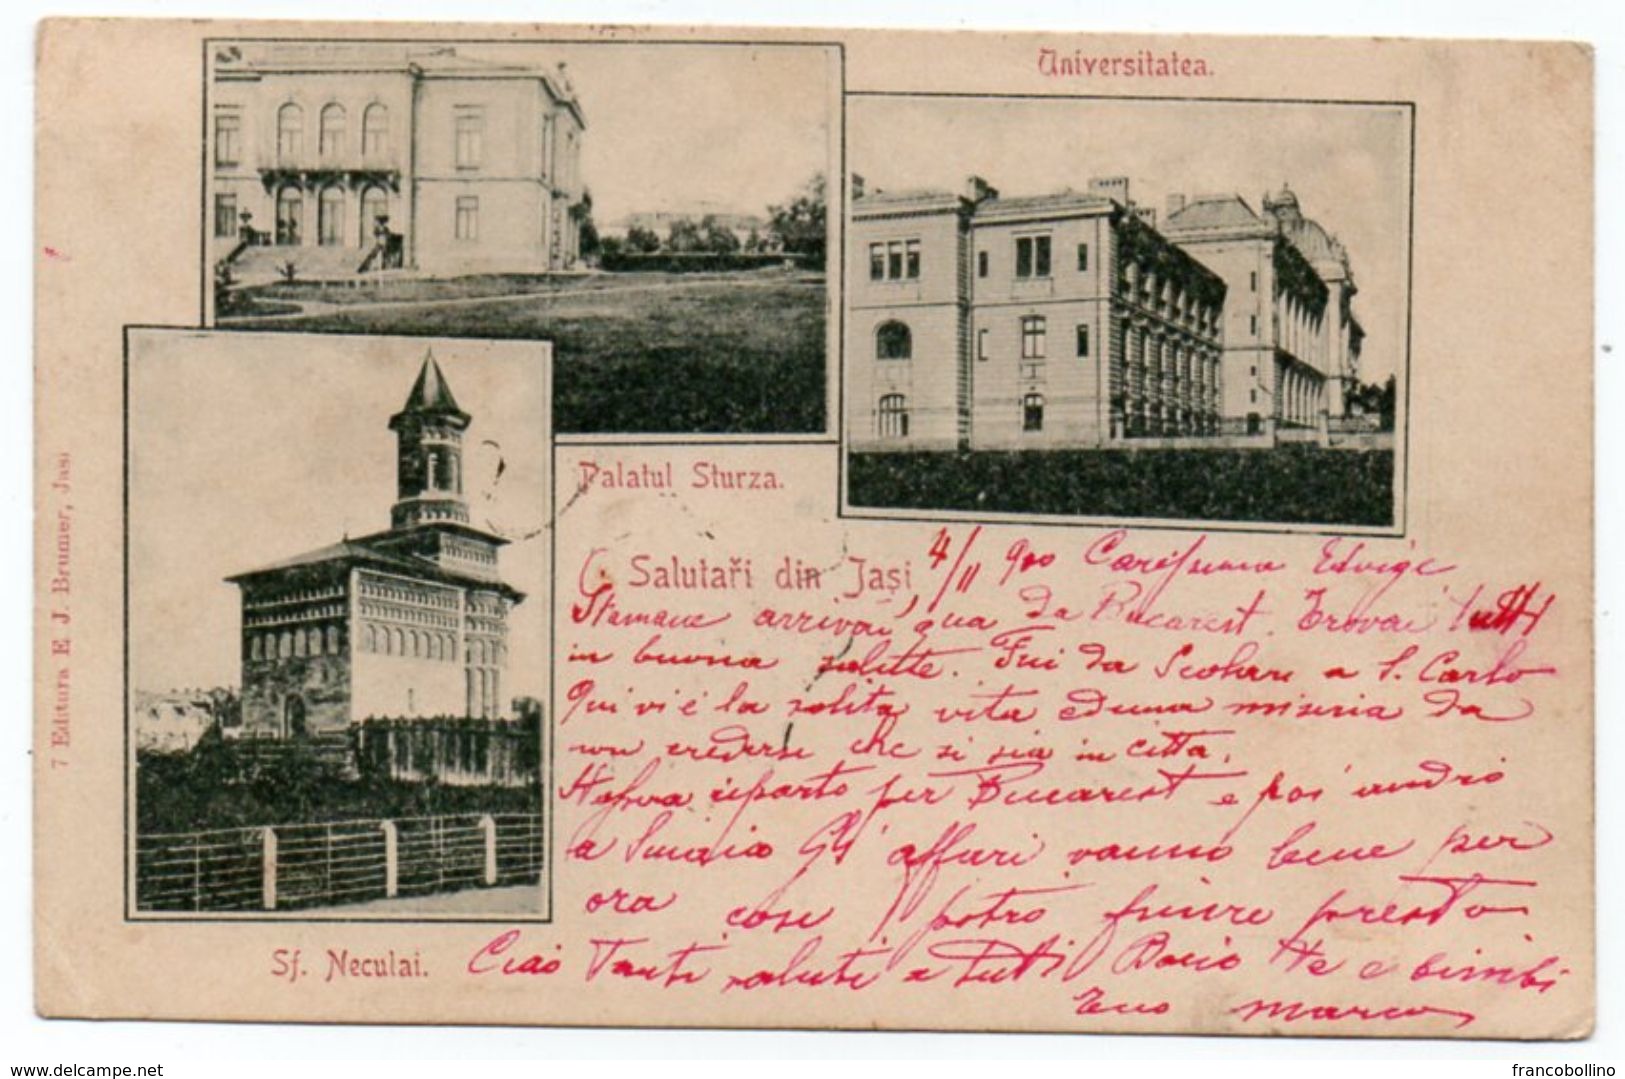 Universitatea.
Palatul Sturza.
7 Editura E. J. Brumer, Jasi
Salutaři din Jaşi
4/11 900 Carissima Edvige
Stamane arrivai qua da Bucarest. Trovai tutti
in buona salute. Fui da Scolari a S. Carlo
Qui vi è la solita vita ed una miseria da
non credersi che si sia in città.
riparto per Bucarest e poi andrò
a Sinaia Gli affari vanno bene per
ora cosi potrò finire presto
Sf. Neculai.
Ciao Tanti saluti a tutti Bacio te e bimbi
Tuo Marco
delcampe.net
francobollino